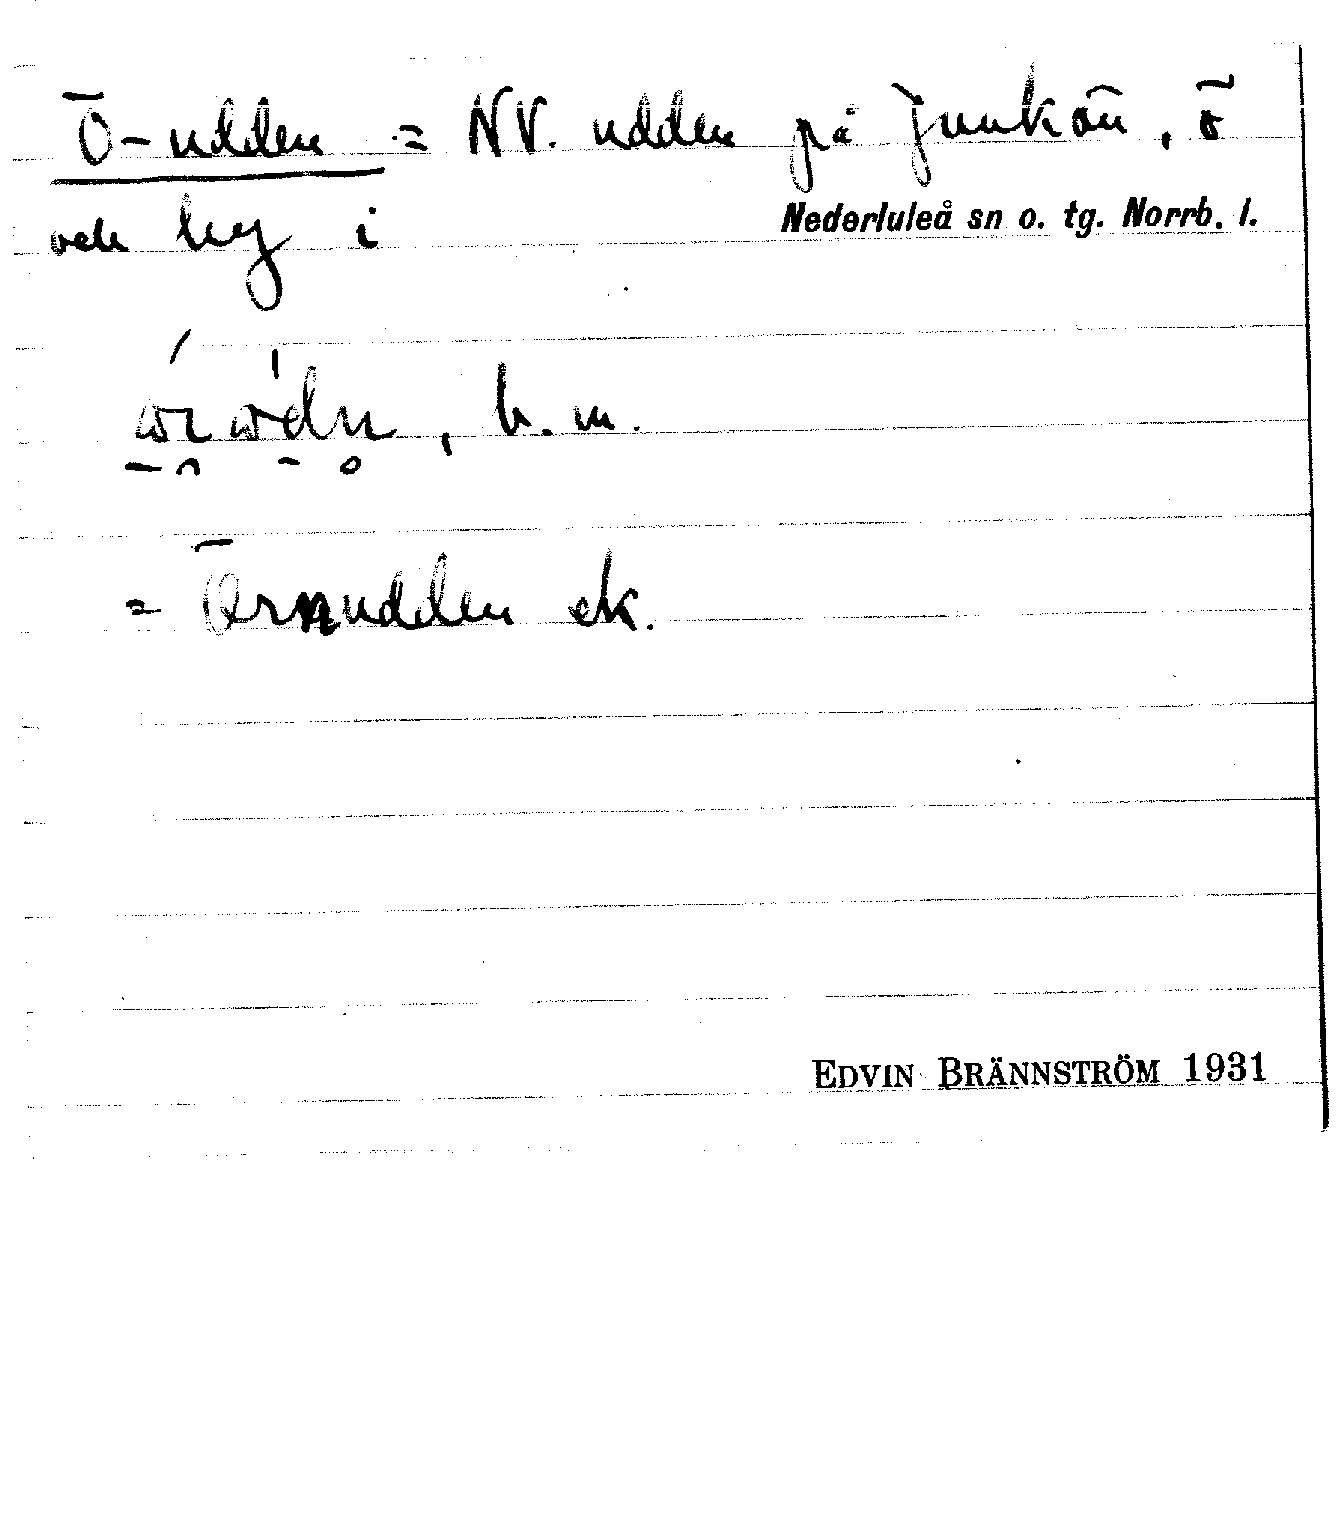 Ö-udden = NV. udden på Junkön, ö
och by i Nederluleå sn o. tg. Norrb. l.
, b. m.
= Örnudden ek.
EDVIN BRÄNNSTRÖM 1931